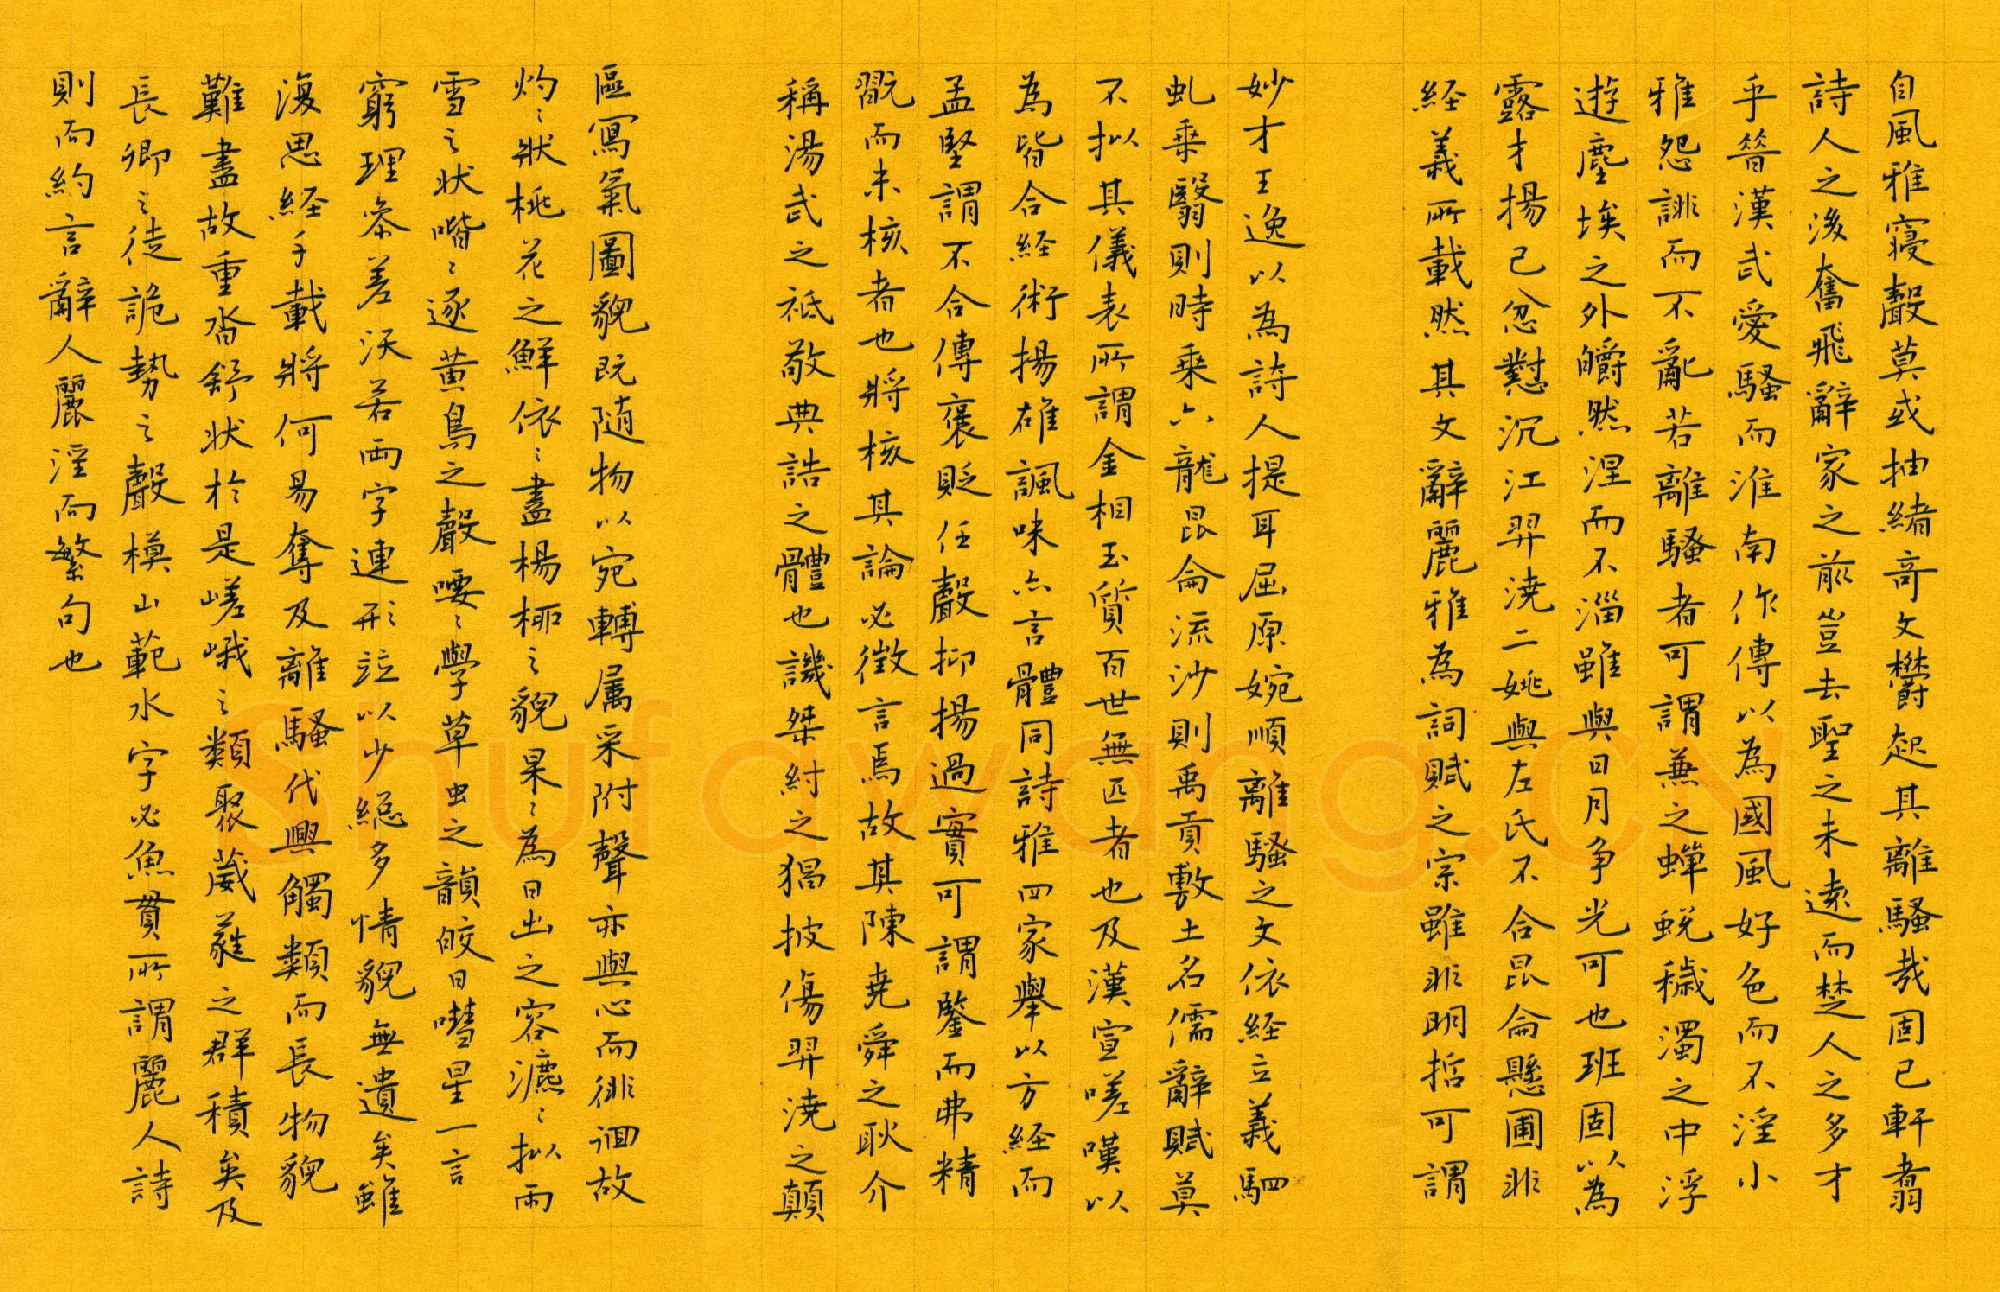 自風雅寑聲莫或抽緒竒文欝起其離騷哉固已軒翥
詩人之後奮飛辭家之前豈去聖之未遠而楚人之多才
乎昔漢武愛騷而淮南作傳以為國風好色而不淫小
雅怨誹而不亂若離騷者可謂兼之蟬蛻穢濁之中浮
遊塵埃之外皭然涅而不淄雖與日月争光可也班固以為
露才揚己忿懟沉江羿浇二姚與左氏不合昆侖懸圃非
経義所載然其文辭麗雅為詞賦之宗雖非明哲可謂
妙才王逸以為詩人提耳屈原婉順離騷之文依経立義駟
虬乗翳則時乗六龍昆侖流沙則禹貢敷土名儒辭賦莫
不拟其儀表所謂金相玉質百世無匹者也及漢宣嗟嘆以
為皆合経術揚雄諷味亦言體同詩雅四家舉以方経而
孟堅謂不合傳褒貶任聲抑揚過實可謂鑒而弗精
翫而未核者也將核其論必徴言焉故其陳堯舜之耿介
稱湯武之祗敬典誥之體也譏桀紂之猖披傷羿浇之顛
區寫氣圖貌既随物以宛轉属采附聲亦與心而徘徊故
灼〻狀桃花之鮮依〻盡楊栁之貌杲〻為日出之容漉〻拟雨
雪之状喈〻逐黄鳥之聲喓〻學草虫之韻皎日嘒星一言
窮理参差沃若兩字連形竝以少総多情貌無遺矣雖
復思経千載將何易奪及離騷代興觸類而長物貌
難盡故重沓舒状於是嵯峨之類聚葳蕤之群積矣及
長卿之徒詭勢之聲模山範水字必魚貫所謂麗人詩
則而約言辭人麗淫而繁句也
Shufawang.CN